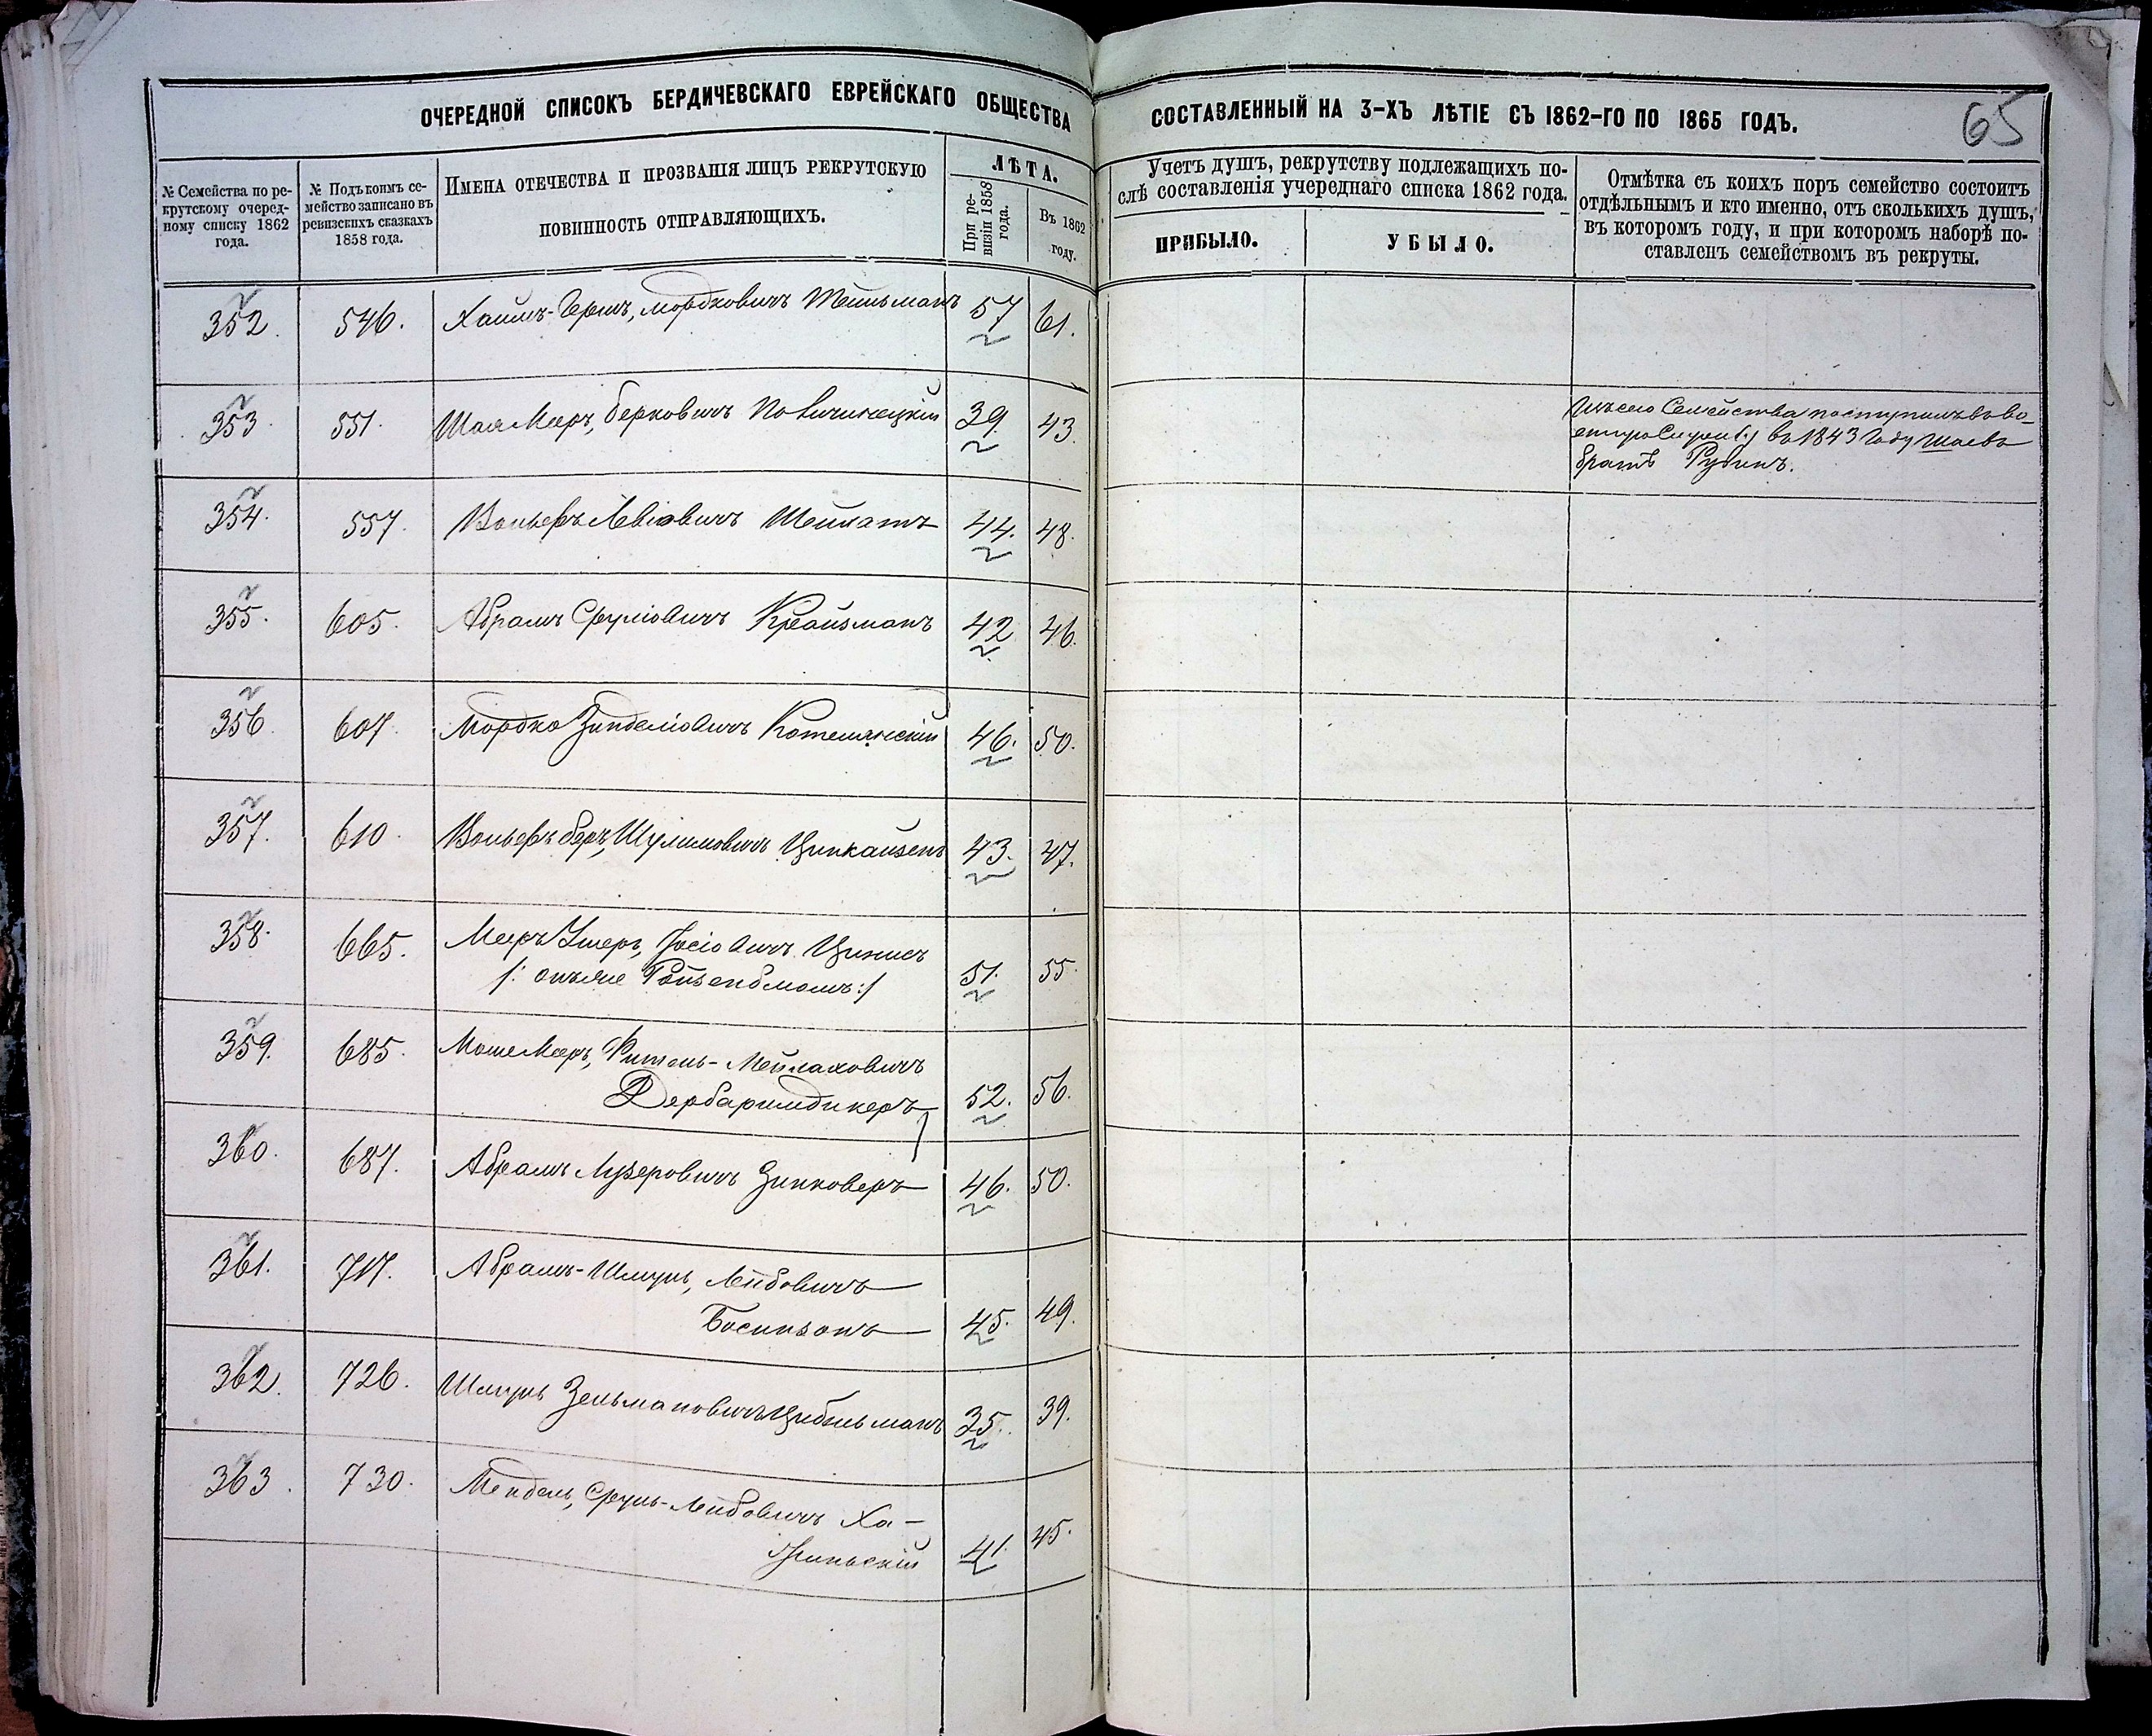 ОЧЕРЕДНОЙ СПИСОКЪ БЕРДИЧЕВСКАГО ЕВРЕЙСКАГО ОБЩЕСТВА
СОСТАВЛЕННЫЙ НА 3-ХЪ ЛѢТІЕ СЪ 1862-ГО ПО 1865 ГОДЪ.
65
№ Семейства по ре-
крутскому очеред-
ному списку 1862
года.
№ Подъ коимъ се-
мейство записано въ
ревизскихъ сказкахъ
1858 года.
ИМЕНА ОТЕЧЕСТВА И ПРОЗВАНІЯ ЛИЦЪ РЕКРУТСКУЮ
ПОВИННОСТЬ ОТПРАВЛЯЮЩИХЪ.
ЛѢТА.
При ре-
визіи 1858
года.
Въ 1862
году.
Учетъ душъ, рекрутству подлежащихъ по-
слѣ составленія учереднаго списка 1862 года.
ПРИБЫЛО.
УБЫЛО.
Отмѣтка съ коихъ поръ семейство состоитъ
отдѣльнымъ и кто именно, отъ сколькихъ душъ,
въ которомъ году, и при которомъ наборѣ по-
ставленъ семействомъ въ рекруты.
352. 546. Хаимъ-Гершъ, Мордковичъ 57 61.
353. 551. Шая Мееръ, Берковичъ 39 43
Семейства
въ 1843 году Шаевъ
братъ Рубинъ.
354. 557. Вольфъ Левіовичъ 44. 48.
355. 605. Абрамъ Сруліовичъ Крайзманъ 42 46.
356. 607. Мордко Зинделіовичъ Котелянскій 46. 50.
357. 610. Вольфъ Беръ, Шулимовичъ 43. 47.
358. 665. Мееръ Ушеръ, Іосіовичъ
/: онъ же :/ 51. 55.
359. 685. Моше Мееръ, Мейлаховичъ
Дербаримдикеръ 52. 56.
360. 687. Абрамъ Лузеровичъ Зинковеръ 46. 50.
361. 717. Абрамъ-Шмуль, Лейбовичъ
45. 49.
362. 726. Шмуль Зельмановичъ 35. 39.
363. 730. Мендель, Сруль-Лейбовичъ Ха-
41. 45.